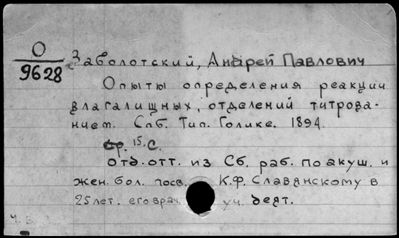 О
9628
Заболотский, Андрей Павлович
Опыты определения реакции
влагалищных, отделений титрова-
нием. Спб. Тип. Голике. 1894.
15 с.
отд. отт. из Сб. раб. по акуш. и
жен. бол. посв. К.Ф. Славянскому в
25 лет. его врач. уч. деят.